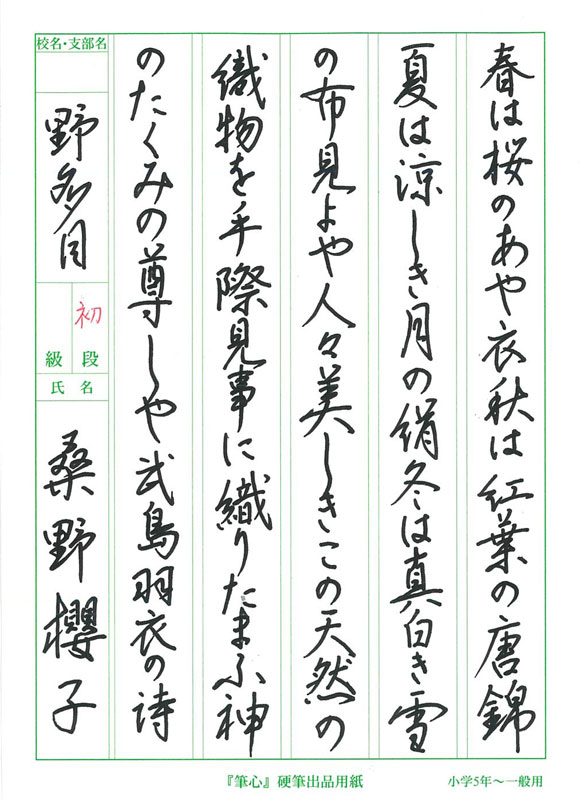 春は桜のあや衣秋は紅葉の唐錦
夏は涼しき月の絹冬は真白き雪
の布見よや人々美しきこの天然の
織物を手際見事に織りたまふ神
のたくみの尊しや武島羽衣の詩
校名・支部名
野多目
初
段
級
氏名
桑野櫻子
『筆心』硬筆出品用紙
小学5年～一般用